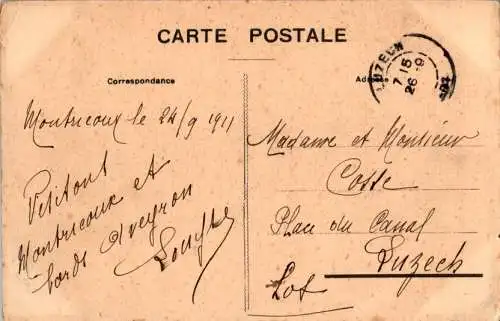 CARTE POSTALE
Correspondance
Montricoux le 24/9 1911
Visitons
Montricoux et
bords Aveyron
LUZECH
7 15
26-9
LOT
Madame et Monsieur
Cosse
Place du Canal
Luzech
Lot